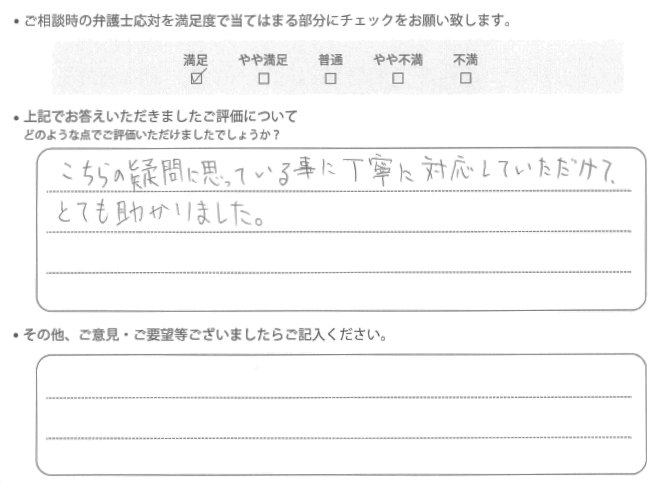 • ご相談時の弁護士応対を満足度で当てはまる部分にチェックをお願い致します。
満足 やや満足 普通 やや不満 不満
☑ □ □ □ □
• 上記でお答えいただきましたご評価について
どのような点でご評価いただけましたでしょうか？
こちらの疑問に思っている事に丁寧に対応していただけて、
とても助かりました。
• その他、ご意見・ご要望等ございましたらご記入ください。